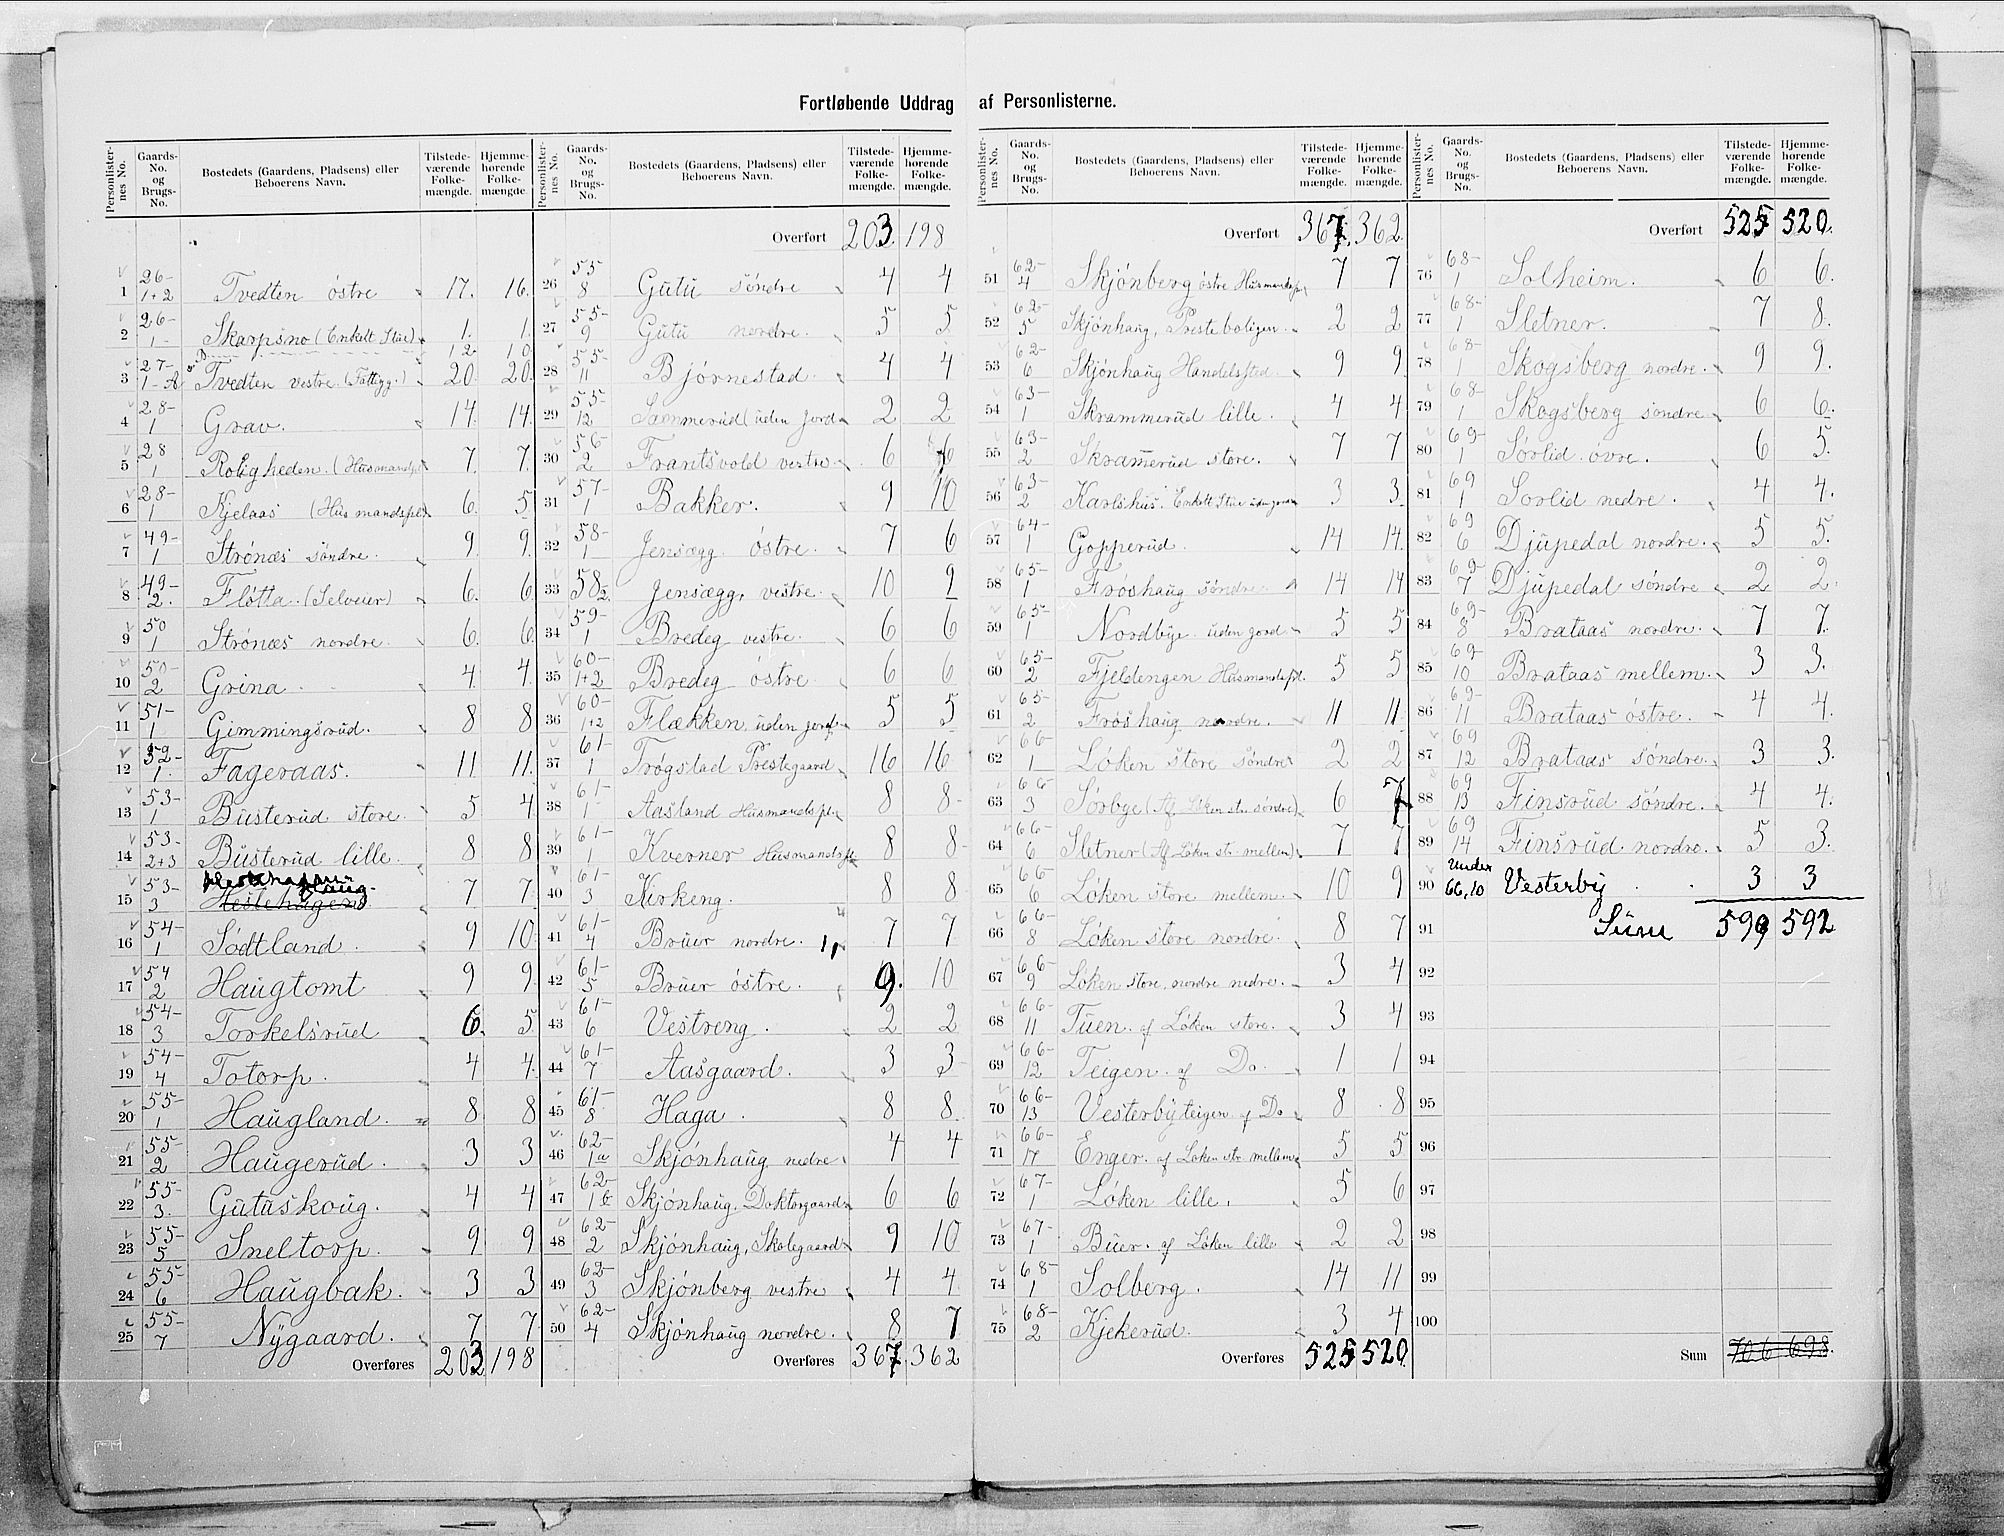 Fortløbende Uddrag af Personlisterne.
Personlister-nes No. | Gaards-No. og Brugs-No. | Bostedets (Gaardens, Pladsens) eller Beboerens Navn. | Tilstede-værende Folke-mængde. | Hjemme-hørende Folke-mængde.
1 | 26-1+2 | Tvedten østre | 17. | 16.
2 | 26-1 | Skarpsno (Enkelt Stue) | 1. | 1.
12 10
3 | 27-1-A | Tvedten vestre (Fattigg.) | 20. | 20.
4 | 28-1 | Grav. | 14 | 14.
5 | 28 1 | Roligheden. (Husmandspl. | 7. | 7.
6 | 28-1 | Kjelaas (Husmandspl. | 6. | 5
7 | 49-1 | Strønæs søndre. | 9. | 9.
8 | 49-2. | Fløtta. (Selveier) | 6. | 6
9 | 50 1 | Strønæs nordre. | 6. | 6.
10 | 50-2 | Grina. | 4. | 4
11 | 51-1 | Gimmingsrud. | 8 | 8
12 | 52-1. | Fageraas. | 11. | 11.
13 | 53-1 | Busterud store. | 5 | 4
14 | 53-2+3 | Busterud lille. | 8 | 8
15 | 53-3 | 7 | 7.
16 | 54-1 | Sødtland. | 9 | 10.
17 | 54 2 | Haugtomt | 9 | 9.
18 | 54-3 | Torkelsrud | 6. | 5.
19 | 54-4 | Totorp. | 4 | 4.
20 | 55-1 | Haugland. | 8 | 8
21 | 55-2 | Haugerud. | 3 | 3
22 | 55-3. | Gutuskoug. | 4 | 4
23 | 55-5 | Sneltorp. | 9 | 9
24 | 55-6 | Haugbak. | 3 | 3
25 | 55-7 | Nygaard. | 7 | 7
Overføres 203 198
Personlister-nes No. | Gaards-No. og Brugs-No. | Bostedets (Gaardens, Pladsens) eller Beboerens Navn. | Tilstede-værende Folke-mængde. | Hjemme-hørende Folke-mængde.
Overført 203. 198
26 | 55 8 | Gutu søndre | 4 | 4
27 | 55-9 | Gutu nordre. | 5 | 5.
28 | 55-11 | Bjørnestad. | 4 | 4
29 | 55-12 | Sæmmerud (uden jord | 2 | 2
30 | 56-2 | Frantsvold vestre | 6 | 6
31 | 57-1 | Bakker. | 9 | 10
32 | 58-1 | Jensægg. østre. | 7 | 6
33 | 58 2. | Jensægg, vestre. | 10 | 9
34 | 59-1 | Bredeg vestre. | 6 | 6
35 | 60-1+2 | Bredeg østre. | 6 | 6
36 | 60-1+2 | Flækken, uden jord | 5 | 5
37 | 61-1 | Trøgstad Prestegaard | 16 | 16
38 | 61-1 | Aasland Husmandspl. | 8 | 8
39 | 61-1 | Kverner Husmandspl. | 8 | 8
40 | 61-3 | Kirkeng. | 8 | 8
41 | 61-4 | Bruer nordre. | 7 | 7
42 | 61-5 | Bruer østre. | 9. | 10
43 | 61-6 | Vestreng. | 2 | 2
44 | 61-7 | Aasgaard. | 3 | 3
45 | 61-8 | Haga. | 8 | 8.
46 | 62-1a | Skjønhaug nedre | 4 | 4
47 | 62-1b | Skjønhaug, Doktorgaard | 6 | 6
48 | 62-2 | Skjønhaug, Skolegaard | 9 | 10
49 | 62-3 | Skjønberg vestre | 4 | 4
50 | 62-4 | Skjønhaug nordre. | 8 | 7
Overføres 367. 362
Personlister-nes No. | Gaards-No. og Brugs-No. | Bostedets (Gaardens, Pladsens) eller Beboerens Navn. | Tilstede-værende Folke-mængde. | Hjemme-hørende Folke-mængde.
Overført 367. 362.
51 | 62-4 | Skjønberg østre Husmandspl | 7 | 7
52 | 62-5 | Skjønhaug, Presteboligen. | 2 | 2
53 | 62-6 | Skjønhaug Handelsted. | 9 | 9
54 | 63-1 | Skrammerud lille. | 4 | 4
55 | 63-2 | Skramerud store. | 7 | 7
56 | 63-2 | Karlshus. Enkelt Stue uden jord | 3 | 3.
57 | 64-1 | Gopperud. | 14 | 14.
58 | 65-1 | Frøshaug søndre. | 14 | 14
59 | 65-1 | Nordbye. uden jord | 5 | 5
60 | 65-2 | Fjeldengen Husmandspl. | 5 | 5
61 | 65-2 | Frøshaug nordre. | 11 | 11.
62 | 66-1 | Løken store søndre | 2 | 2
63 | 66-3 | Sørbye (Af Løken st. søndre) | 6 | 7
64 | 66-6 | Sletner (Af Løken st. mellem) | 7 | 7
65 | 66-6 | Løken store mellem. | 10 | 9
66 | 66-8 | Løken store nordre. | 8 | 7
67 | 66-9 | Løken store, nordre nedre. | 3 | 4
68 | 66-11 | Tuen. af Løken store. | 3 | 4
69 | 66-12 | Teigen. af Do. | 1 | 1
70 | 66-13 | Vesterbyteigen. af Do | 8 | 8
71 | 66-17 | Enger. af Løken str. mellem | 5 | 5
72 | 67-1 | Løken lille. | 5 | 6
73 | 67-1 | Buer. af Løken lille | 2 | 2
74 | 68-1 | Solberg. | 14 | 11
75 | 68-2 | Kjekerud. | 3 | 4
Overføres 525 520
Personlister-nes No. | Gaards-No. og Brugs-No. | Bostedets (Gaardens, Pladsens) eller Beboerens Navn. | Tilstede-værende Folke-mængde. | Hjemme-hørende Folke-mængde.
Overført 525 520.
76 | 68-1 | Solheim. | 6 | 6.
77 | 68-1 | Sletner. | 7 | 8.
78 | 68-1 | Skogsberg nordre. | 9 | 9.
79 | 68-1 | Skogsberg søndre | 6 | 6.
80 | 69-1 | Sørlid øvre. | 6 | 5.
81 | 69 1 | Sørlid nedre. | 4 | 4.
82 | 69 6 | Djupedal nordre. | 5 | 5.
83 | 69-7 | Djupedal søndre | 2 | 2
84 | 69-8 | Brataas nordre. | 7 | 7.
85 | 69-10 | Brataas mellem. | 3 | 3.
86 | 69-11 | Brataas østre. | 4 | 4.
87 | 69 12 | Brataas søndre. | 3 | 3.
88 | 69 13 | Finsrud søndre. | 4 | 4.
89 | 69 14 | Finsrud nordre. | 5 | 3.
90 | under 66,10 | Vesterby | 3 | 3
91 | Sum | 599 | 592
92
93
94
95
96
97
98
99
100
Sum 706 698.